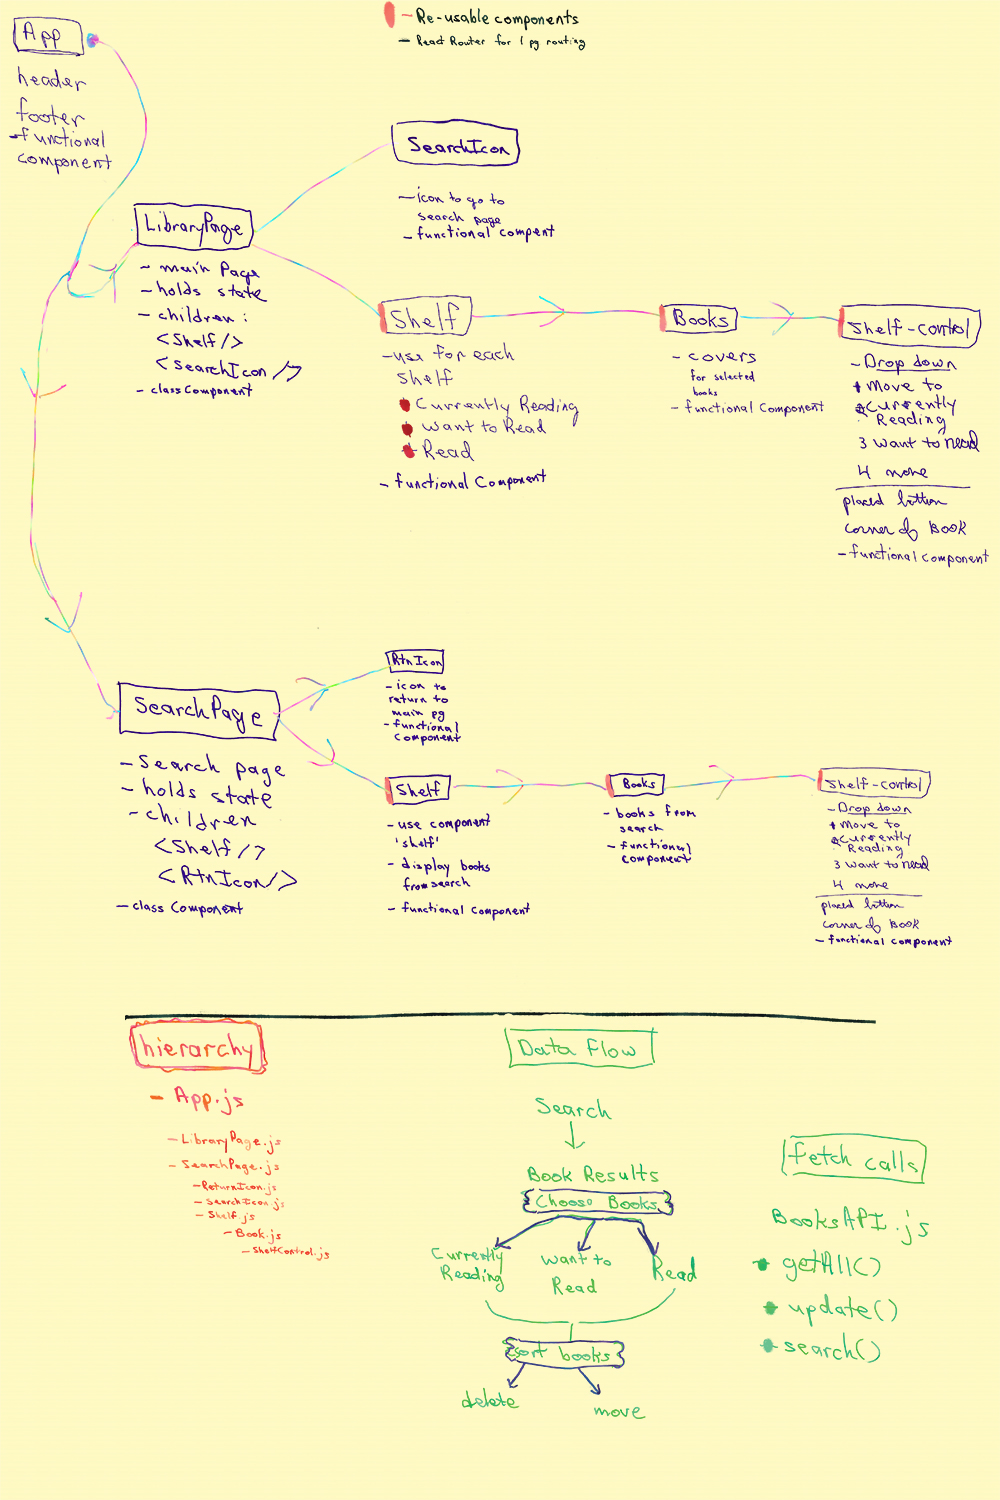 App
header
footer
-functional
component
- Re-usable components
- React Router for 1 pg routing
SearchIcon
- icon to go to
search page
- functional compent
LibraryPage
- main Page
- holds state
- children:
<Shelf/>
<SearchIcon/>
- class Component
Shelf
- use for each
shelf
Currently Reading
Want to Read
Read
- functional Component
Books
- covers
for selected
books
- functional Component
Shelf-control
- Drop down
Move to
Currently
Reading
3 Want to read
4 none
placed bottom
corner of Book
- functional component
SearchPage
- Search page
- holds state
- children
<Shelf/>
<RtnIcon/>
- class Component
RtnIcon
- icon to
return to
main pg
- functional
component
Shelf
- use component
'shelf'
- display books
from search
- functional component
Books
- books from
search
- functional
component
Shelf-control
- Drop down
Move to
Currently
Reading
3 Want to read
4 none
placed bottom
corner of Book
- functional component
hierarchy
- App.js
- LibraryPage.js
- SearchPage.js
- ReturnIcon.js
- SearchIcon.js
- Shelf.js
- Book.js
- ShelfControl.js
Data Flow
Search
Book Results
Choose Books
Currently
Reading
want to
Read
Read
sort books
delete
move
fetch calls
BooksAPI.js
getAll()
update()
search()